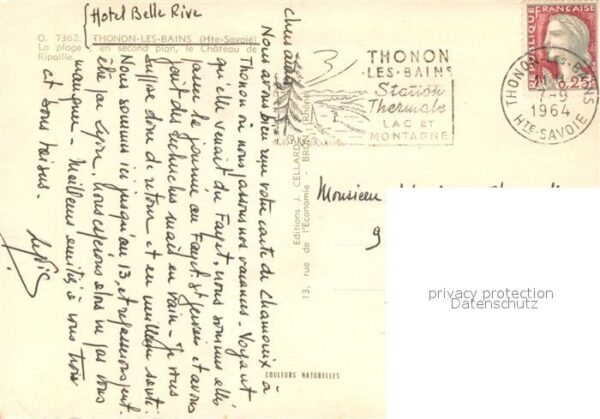 Hotel Belle Rive
O. 7362. THONON-LES-BAINS (Hte-Savoie)
La plage en second plan, le Château de
Ripaille
chers amis
Nous avons bien reçu votre carte de Chamonix à
Thonon où nous passons nos vacances - Voyant
qu'elle venait du Fayet, nous sommes allés
passer la journée au Fayet St Gervais et avons
fait des recherches mais en vain - Je vous
suppose donc de retour et en meilleure santé.
Nous sommes ici jusqu'au 13, et repasserons peut
être par Lyon, nous espérons alors ne pas vous
manquer - Meilleures amitiés à vous trois
et bons baisers -
Editions J. CELLARD
13, rue de l'Economie - BRON (Rhône)
COULEURS NATURELLES
THONON
-LES-BAINS
Station
Thermale
LAC ET
MONTAGNE
REPUBLIQUE FRANÇAISE
0,25
THONON-LES-BAINS
7-9
1964
HTE-SAVOIE
Monsieur
9
privacy protection
Datenschutz